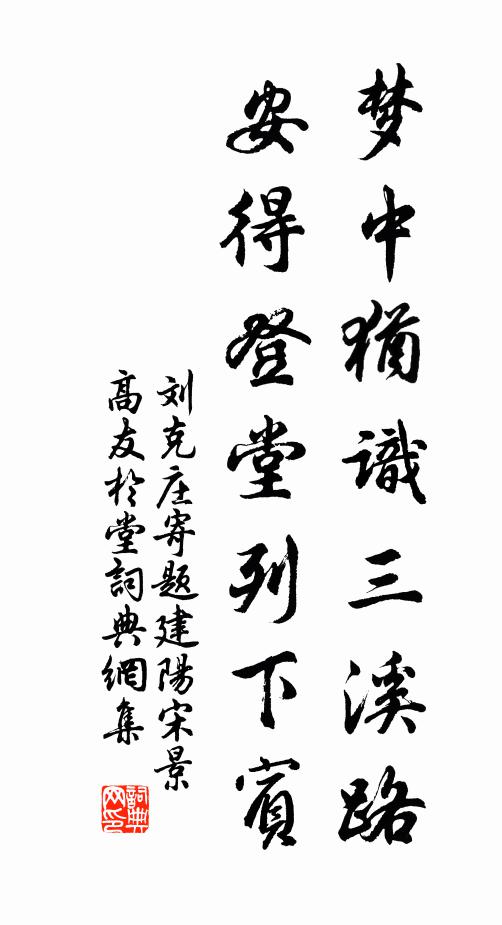 梦中猶識三溪路
安得登堂列下賓
刘克庄寄题建陽宋景
高友於堂詞典網集
詞典
网印